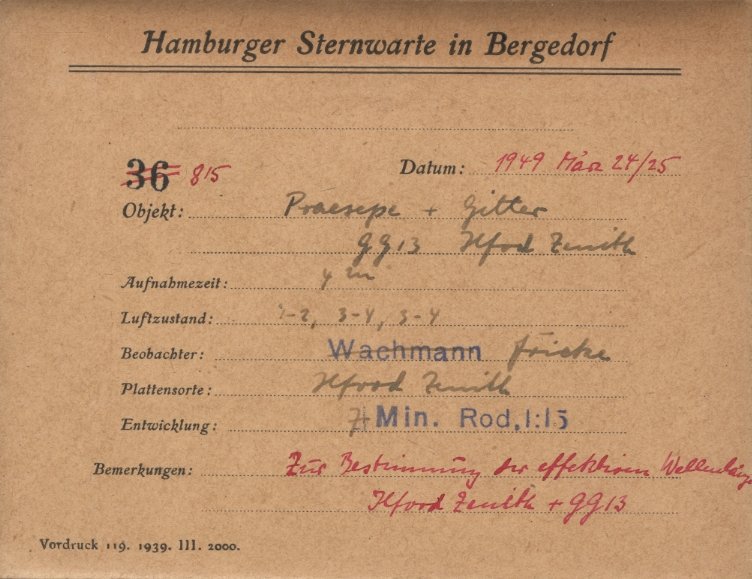 Hamburger Sternwarte in Bergedorf
36 815 Datum: 1949 März 24/25
Objekt: Praesepe + Gitter
GG13 Ilford Zenith
Aufnahmezeit: 4 m
Luftzustand: 1-2, 3-4, 3-4
Beobachter: Wachmann Fricke
Plattensorte: Ilford Zenith
Entwicklung: Min. Rod, 1:15
Bemerkungen: Zur Bestimmung der effektiven Wellenlänge
Ilford Zenith + GG13
Vordruck 119. 1939. III. 2000.